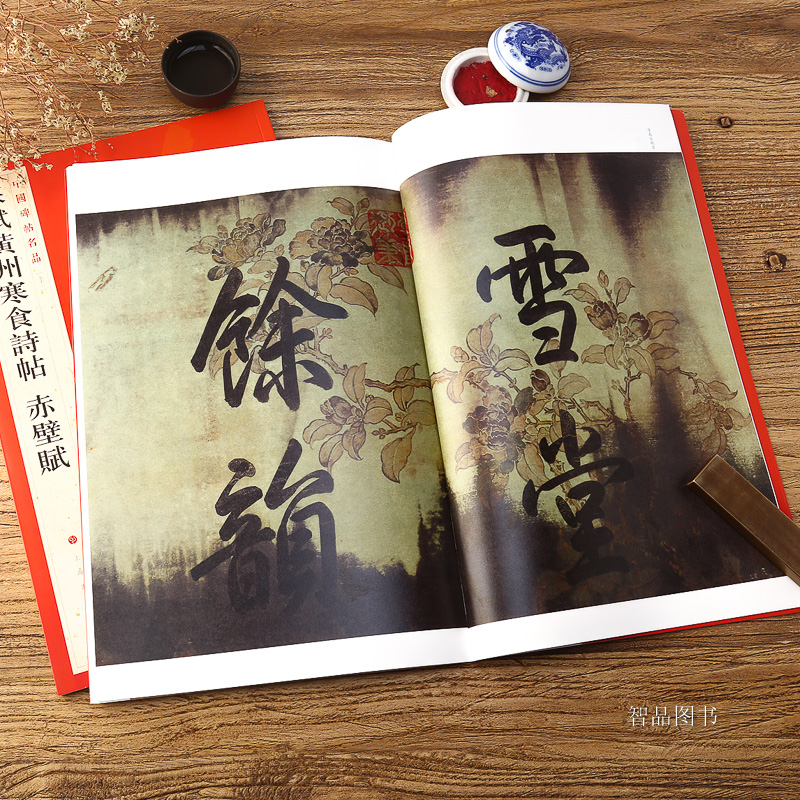 雪堂
餘韻
中國碑帖名品
黃州寒食詩帖 赤壁賦
智品图书